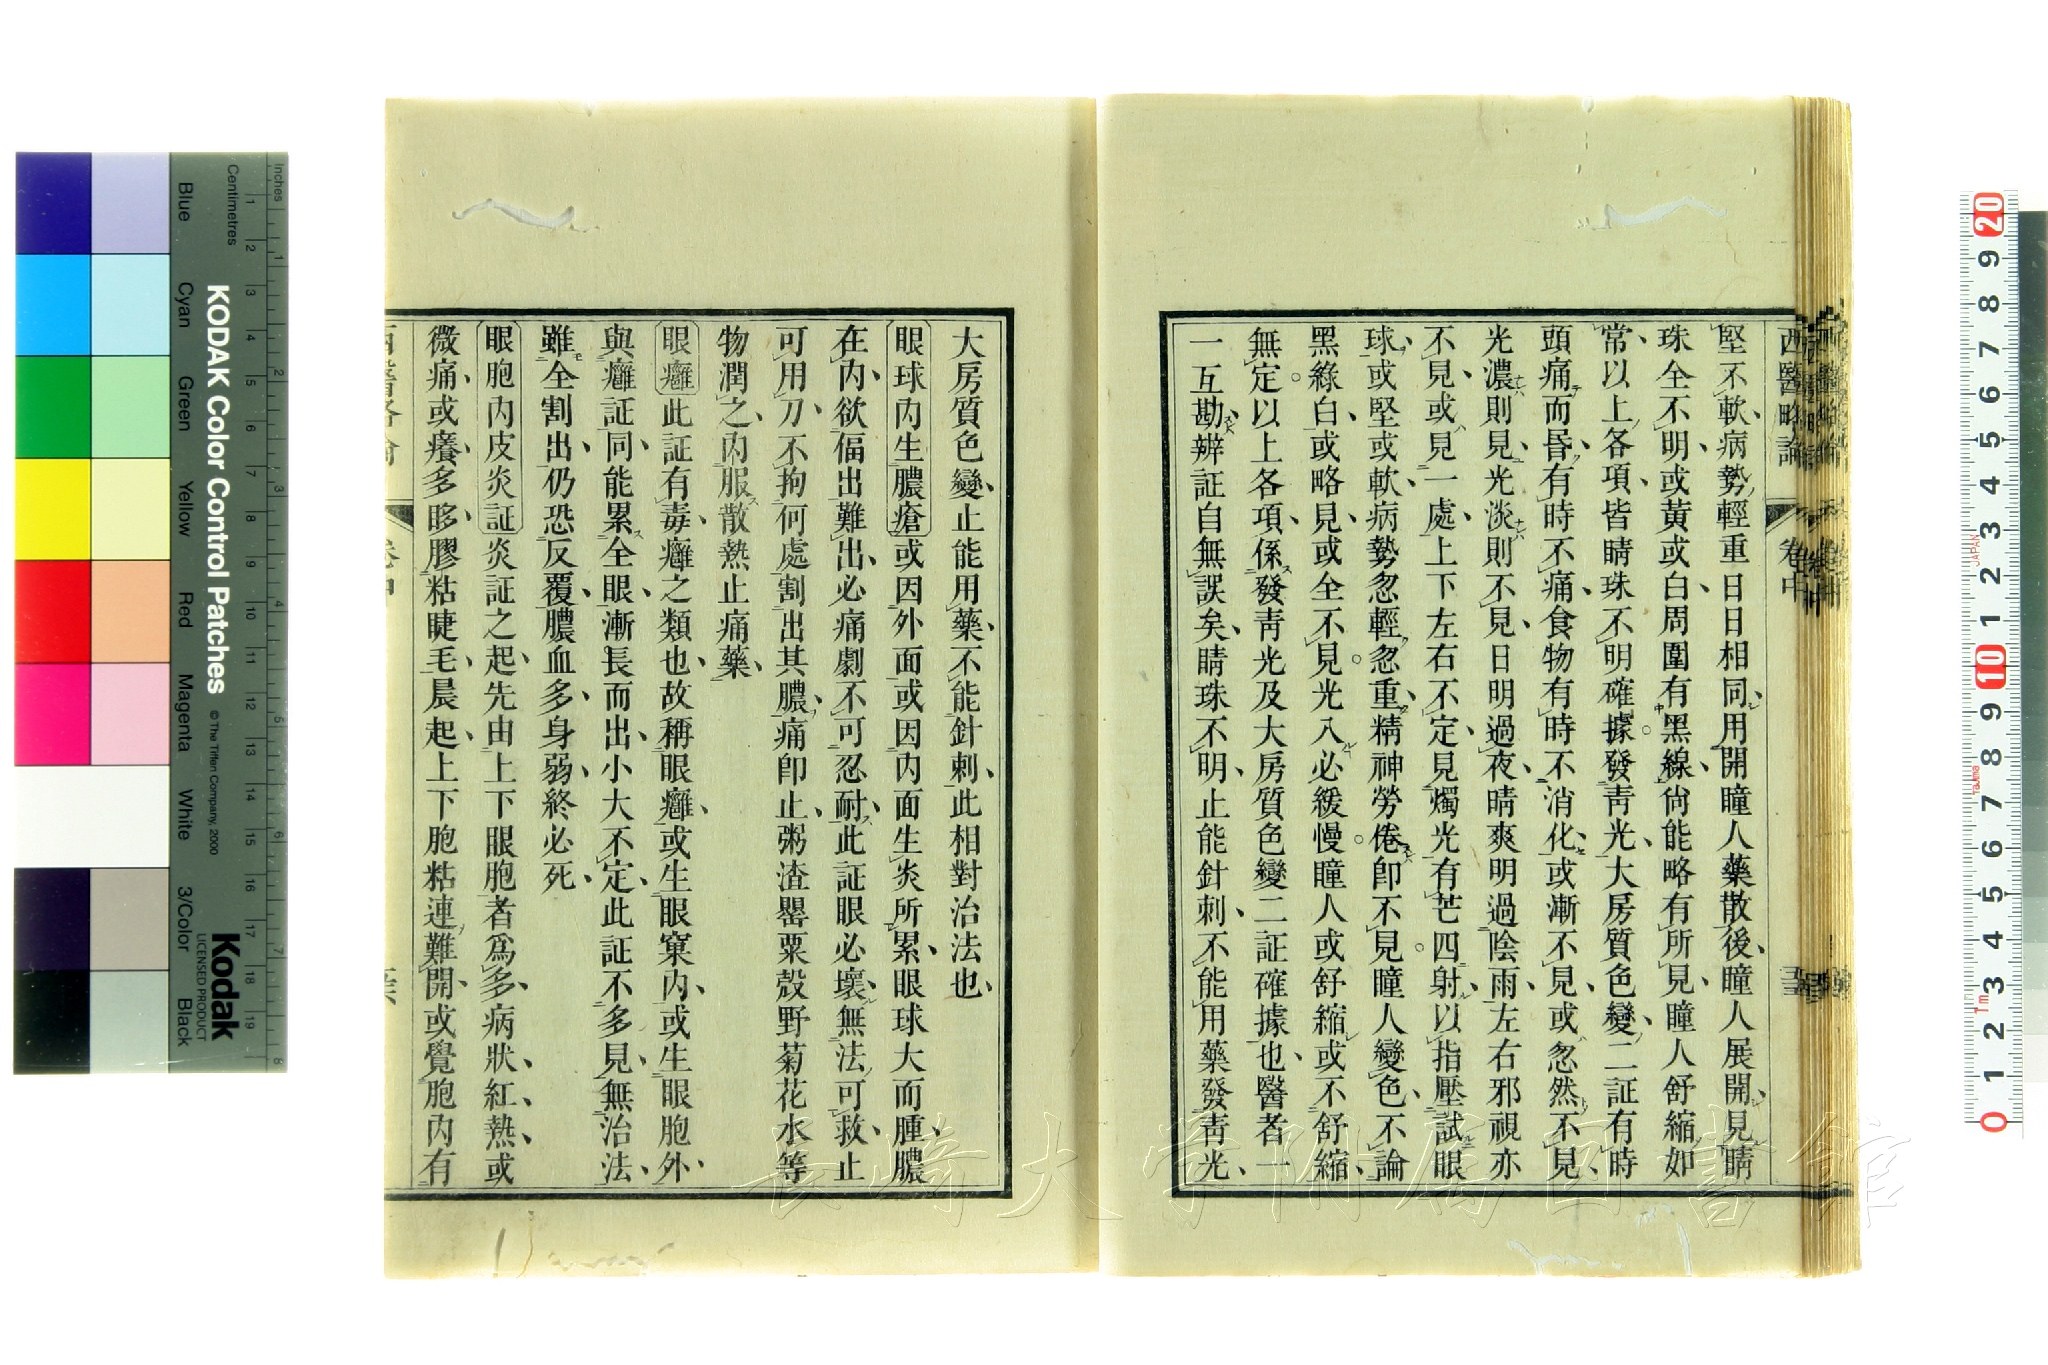 西醫略論 卷中
堅不軟、病勢輕重日日相同、用開瞳人藥散後、瞳人展開、見睛
珠全不明、或黃或白、周圍有黑線、尙能略有所見、瞳人舒縮如
常、以上各項、皆睛珠不明確據。發靑光、大房質色變、二証有時
頭痛而昏、有時不痛、食物有時不消化、或漸不見、或忽然不見、
光濃則見、光淡則不見、日明過夜、晴爽明過陰雨、左右邪視亦
不見、或見一處、上下左右不定、見燭光有芒四射、以指壓試眼
球、或堅或軟、病勢忽輕忽重、精神勞倦卽不見。瞳人變色、不論
黑綠白、或略見、或全不見。光入必緩慢。瞳人或舒縮或不舒縮、
無定。以上各項、係發靑光及大房質色變二証確據也、醫者一
一互勘、辨証自無誤矣、睛珠不明、止能針刺、不能用藥、發靑光、
大房質色變、止能用藥、不能針刺、此相對治法也、
眼球內生膿瘡 或因外面或因內面生炎所累、眼球大而腫、膿
在內、欲偪出難出、必痛劇不可忍耐、此証眼必壞、無法可救、止
可用刀、不拘何處割出其膿、痛卽止、粥渣罌粟殼野菊花水等
物潤之、內服散熱止痛藥、
眼癰 此証有毒、癰之類也、故稱眼癰、或生眼窠內、或生眼胞外、
與癰証同、能累全眼、漸長而出、小大不定、此証不多見、無治法、
雖全割出、仍恐反覆、膿血多、身弱、終必死、
眼胞內皮炎証 炎証之起、先由上下眼胞者爲多、病狀、紅、熱、或
微痛、或癢、多眵、膠粘睫毛、晨起、上下胞粘連難開、或覺胞內有
KODAK Color Control Patches
© The Tiffen Company, 2000
Kodak
LICENSED PRODUCT
Inches
Centimetres
Blue
Cyan
Green
Yellow
Red
Magenta
White
3/Color
Black
長崎大学附属図書館